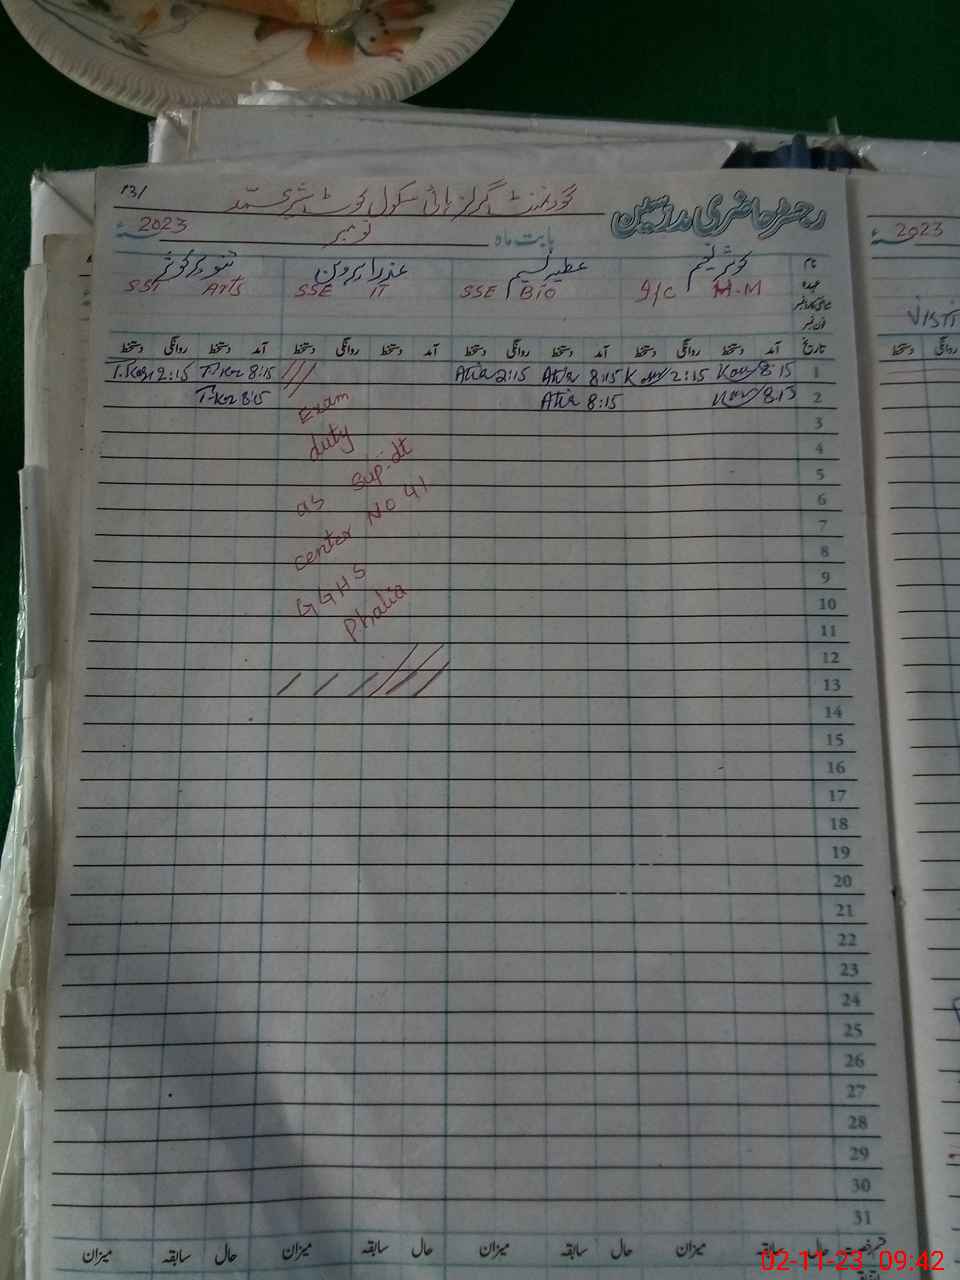 131
گورنمنٹ گرلز ہائی سکول کوٹ شیر محمد
رجسٹر حاضری مدرسین
بابت ماہ نومبر 2023ء
2023ء
نام کوثر نسیم عطیہ نسیم عذرا پروین تنویر کوثر
عہدہ I/C H.M SSE Bio SSE IT SST Arts
فون نمبر
تاریخ آمد دستخط روانگی دستخط آمد دستخط روانگی دستخط آمد دستخط روانگی دستخط آمد دستخط روانگی دستخط
روانگی دستخط
1 8:15 2:15 8:15 Atia 2:15 Atia 8:15 2:15
2 8:15 8:15 Atia 8:15
3
4
5
6
7
8
9
10
11
12
13
14
15
16
17
18
19
20
21
22
23
24
25
26
27
28
29
30
31
Exam
duty
as Sup-dt
center No 41
GGHS
Phalia
حال سابقہ میزان حال سابقہ میزان حال سابقہ میزان حال سابقہ میزان
02-11-23 09:42